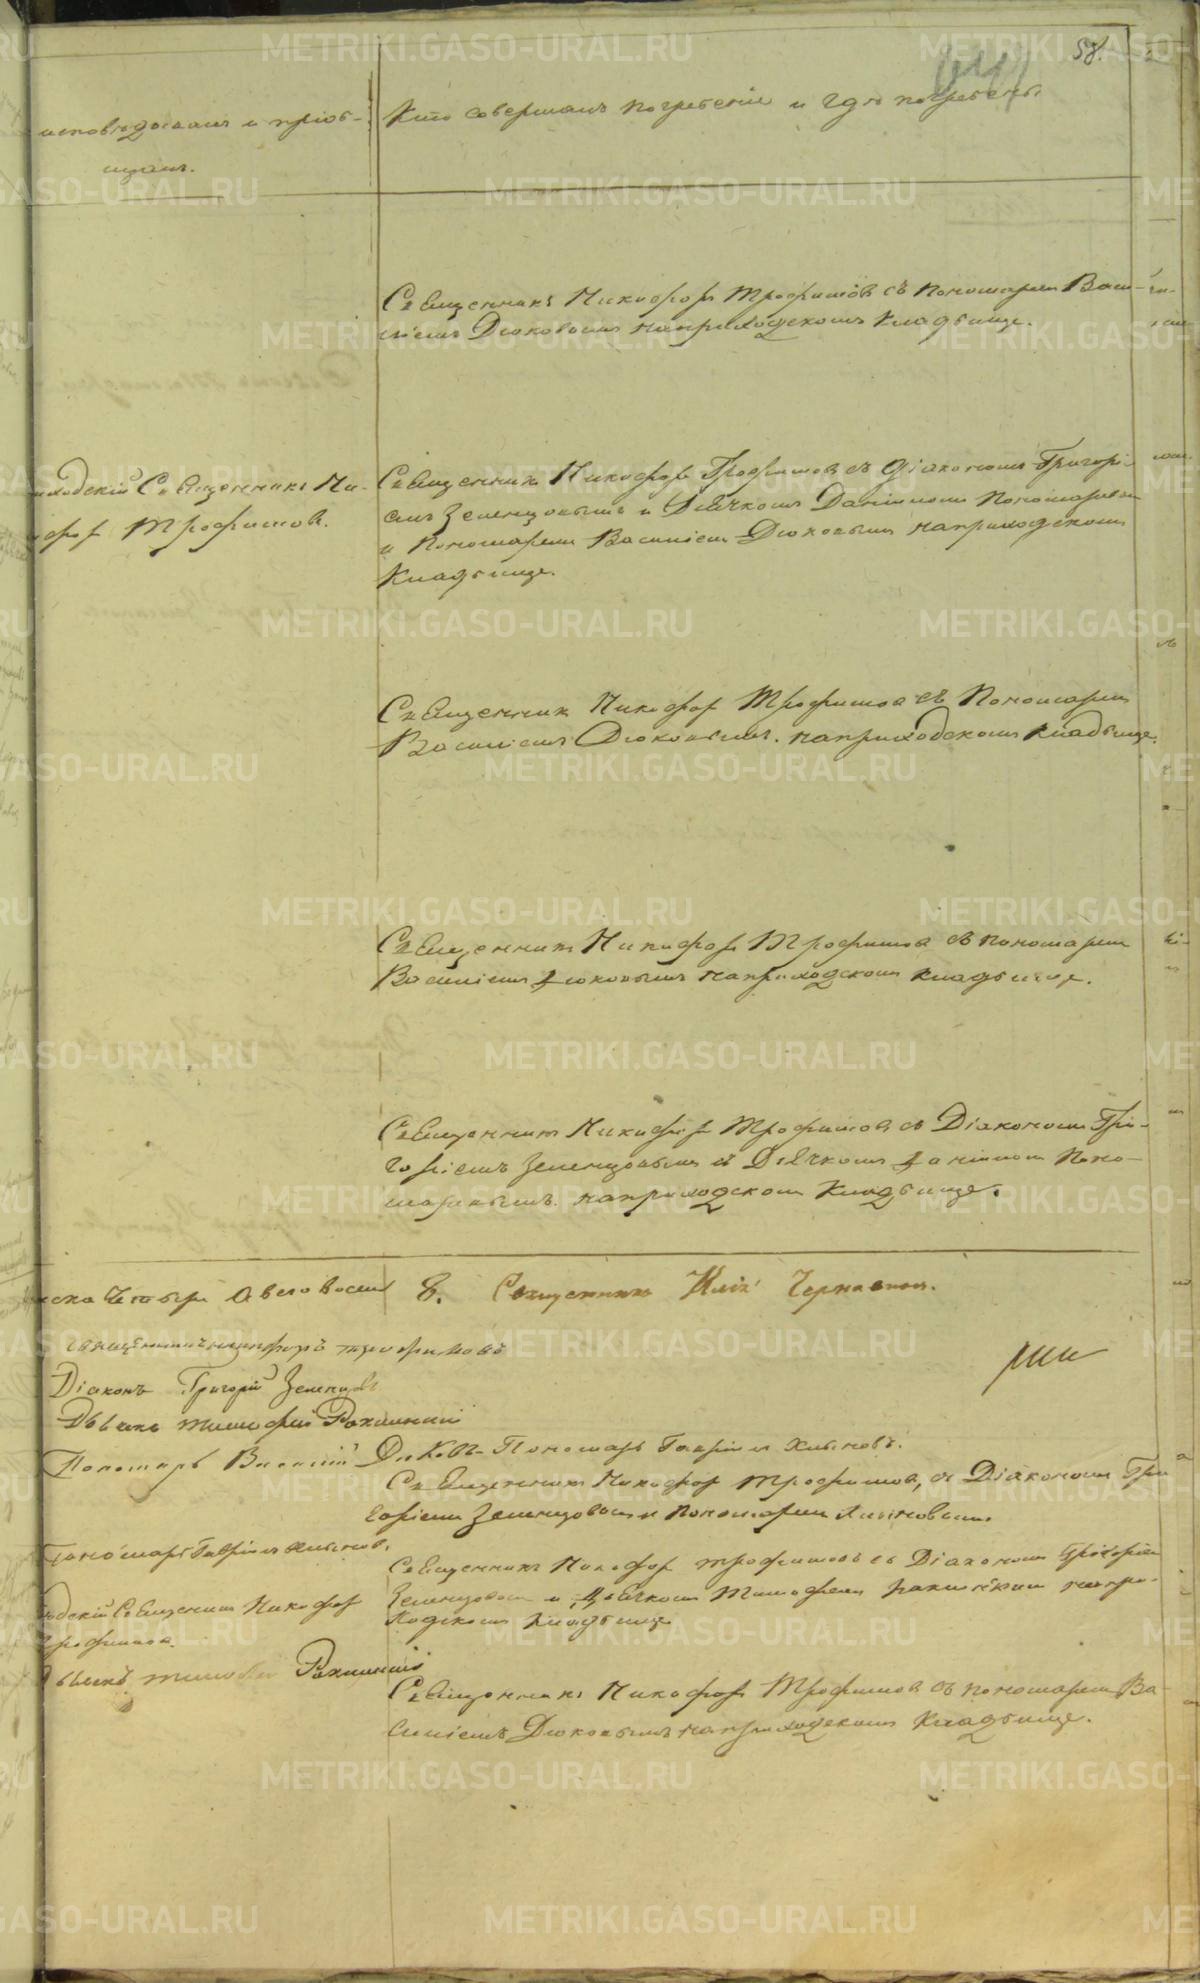 58.
исповѣдовалъ и пріоб-
щалъ.
Кто совершалъ погребеніе и гдѣ погребены
Священникъ Никифоръ Трофимовъ съ Пономаремъ Васи-
ліемъ Дюковымъ на приходскомъ кладбище.
Священникъ Ни-
Трофимовъ.
Священникъ Никифоръ Трофимовъ съ Діакономъ Григорі-
емъ Зеленцовымъ и Дьячкомъ Даніиломъ Пономаревымъ
и Пономаремъ Василіемъ Дюковымъ на приходскомъ
Кладбище.
Священникъ Никифоръ Трофимовъ съ Пономаремъ
Василіемъ Дюковымъ. на приходскомъ кладбище.
Священникъ Никифоръ Трофимовъ съ пономаремъ
Василіемъ Дюковымъ на приходскомъ кладбище.
Священникъ Никифоръ Трофимовъ съ Діакономъ Гри-
горіемъ Зеленцовымъ и Дьячкомъ Даніиломъ Поно-
маревымъ. на приходскомъ Кладбище.
8. Священникъ Илія
священникъ никифоръ трофимовъ
Діаконъ Григорій
Дьячекъ тимофей
Пономарь Василій Дюковъ Пономарь Гавріилъ Хлыновъ.
Священникъ Никифоръ Трофимовъ, съ Діакономъ Гри
горіемъ Зеленцовымъ и Пономаремъ Хлыновымъ
Пономарь Гавріилъ Хлыновъ.
Священникъ Никифоръ Трофимовъ съ Діакономъ Григоріемъ
Зеленцовымъ и Дьячкомъ Тимофеемъ на при-
ходскомъ кладбище
Священникъ Никифоръ
Трофимовъ.
Священникъ Никифоръ Трофимовъ съ пономаремъ Ва-
силіемъ Дюковымъ на приходскомъ Кладбище.
METRIKI.GASO-URAL.RU